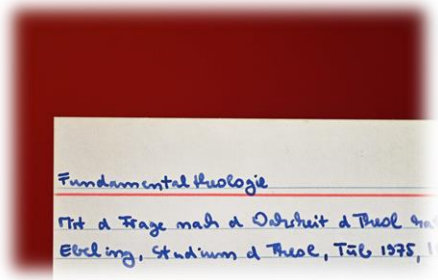 Fundamentaltheologie
Mit d Frage nach d Wahrheit d Theol hat
Ebeling, Studium d Theol, Tüb 1975, 1